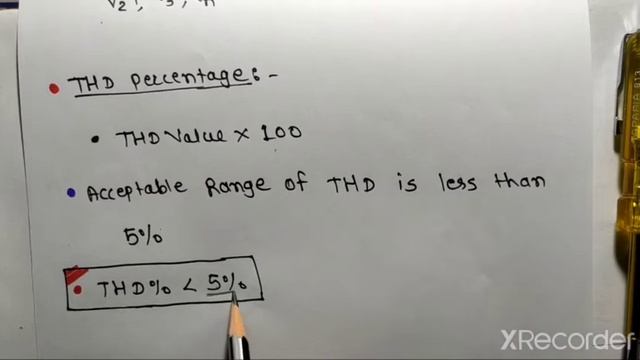 THD Percentage: -
THD Value × 100
Acceptable Range of THD is less than
5%
THD% < 5%
XRecorder